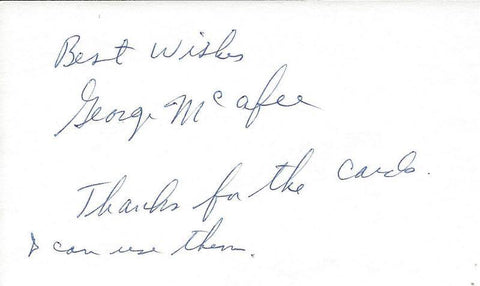 Best Wishes
George McAfee
Thanks for the cards.
I can use them.